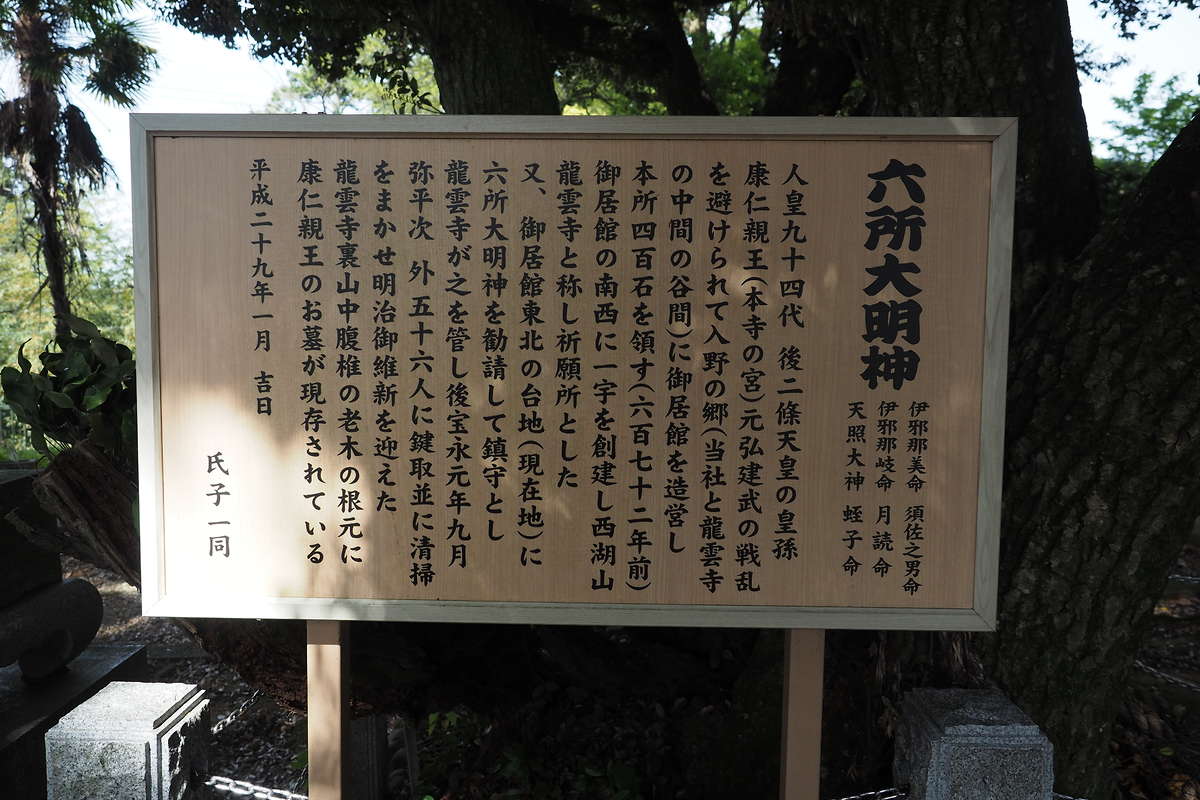 六所大明神
伊邪那美命 須佐之男命
伊邪那岐命 月読命
天照大神 蛭子命
人皇九十四代 後二條天皇の皇孫
康仁親王(本寺の宮)元弘建武の戦乱
を避けられて入野の郷(当社と龍雲寺
の中間の谷間)に御居館を造営し
本所四百石を領す(六百七十二年前)
御居館の南西に一宇を創建し西湖山
龍雲寺と称し祈願所とした
又、御居館東北の台地(現在地)に
六所大明神を勧請して鎮守とし
龍雲寺が之を管し後宝永元年九月
弥平次 外五十六人に鍵取並に清掃
をまかせ明治御維新を迎えた
龍雲寺裏山中腹椎の老木の根元に
康仁親王のお墓が現存されている
平成二十九年一月 吉日
氏子一同